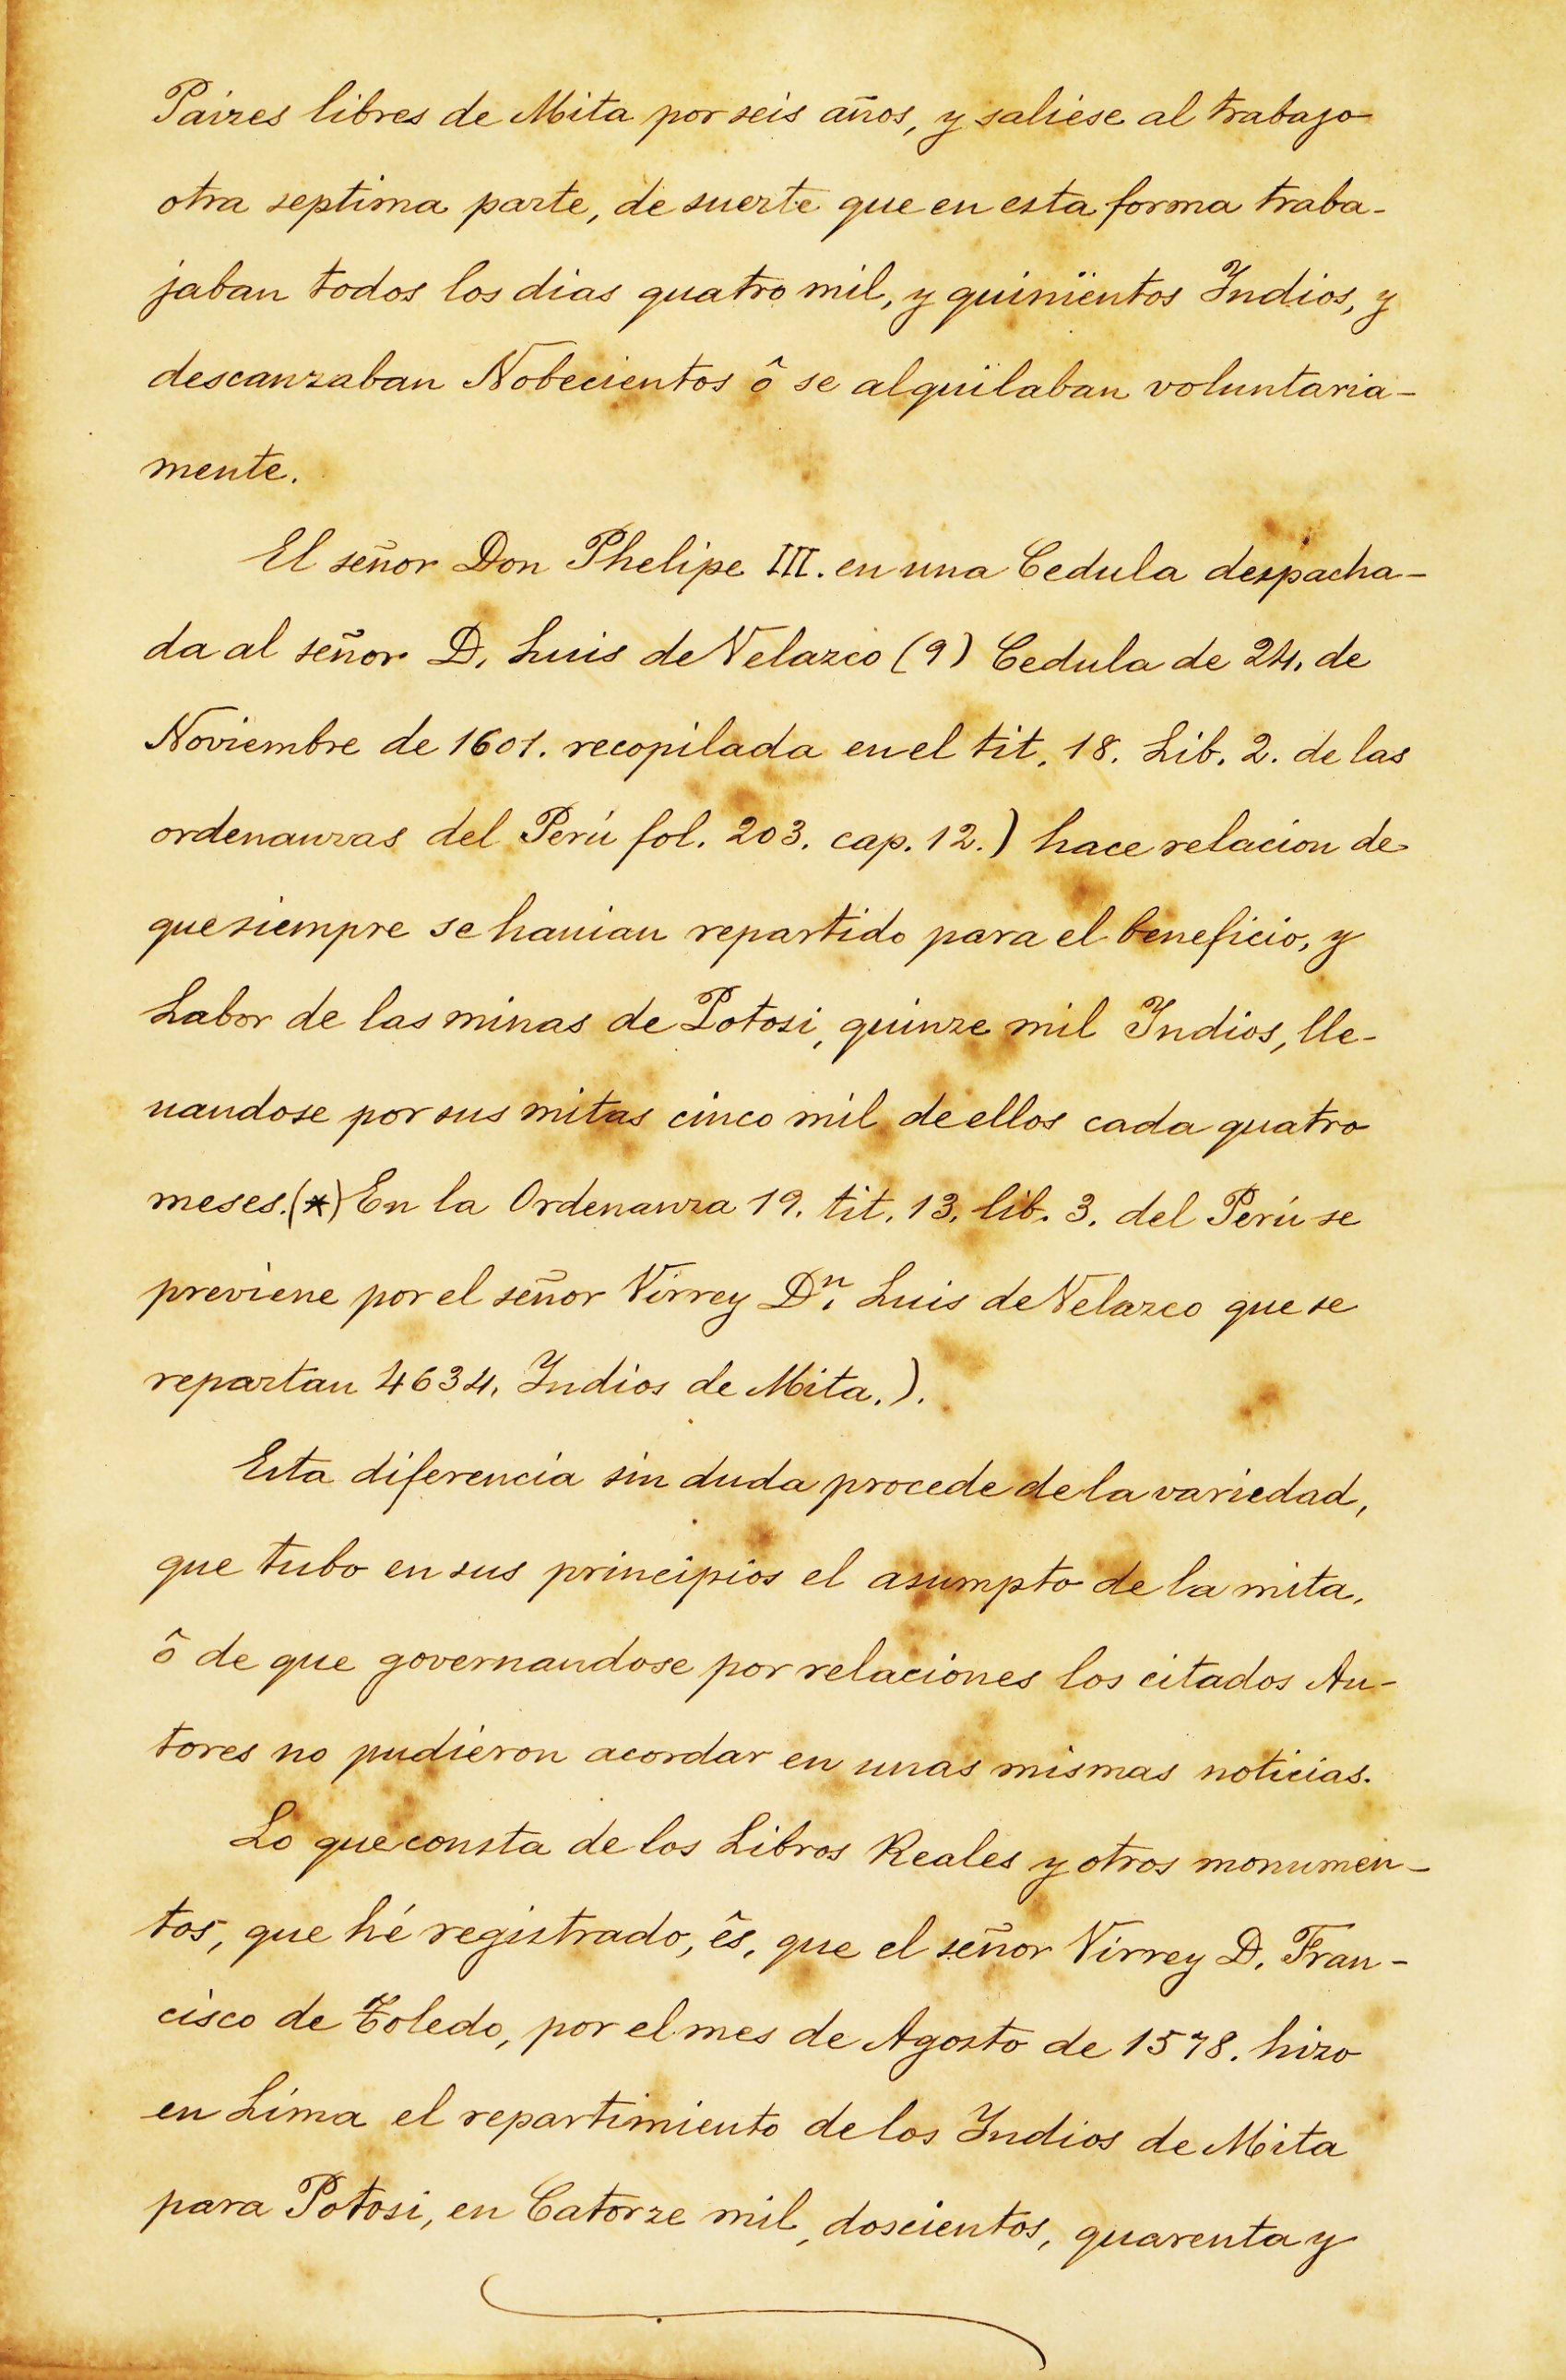 Paizes libres de Mita por seis años, y saliese al trabajo
otra septima parte, de suerte que en esta forma traba-
jaban todos los dias quatro mil, y quinientos Indios, y
descanzaban Nobecientos ô se alquilaban voluntaria-
mente.
El señor Don Phelipe III. en una Cedula despacha-
da al señor D. Luis de Velazco (9) Cedula de 24. de
Noviembre de 1601. recopilada en el tit. 18. Lib. 2. de las
ordenanzas del Perú fol. 203. cap. 12.) hace relacion de
que siempre se hauian repartido para el beneficio, y
Labor de las minas de Potosi, quinze mil Indios, lle-
uandose por sus mitas cinco mil de ellos cada quatro
meses.(*) En la Ordenanza 19. tit. 13. lib. 3. del Perú se
previene por el señor Virrey Dn. Luis de Velazco que se
repartan 4634. Indios de Mita.).
Esta diferencia sin duda procede de la variedad,
que tubo en sus principios el asumpto de la mita,
ô de que governandose por relaciones los citados Au-
tores no pudieron acordar en unas mismas noticias.
Lo que consta de los Libros Reales y otros monumen-
tos, que hé registrado, ês, que el señor Virrey D. Fran-
cisco de Toledo, por el mes de Agosto de 1578. hizo
en Lima el repartimiento de los Indios de Mita
para Potosi, en Catorze mil, doscientos, quarenta y